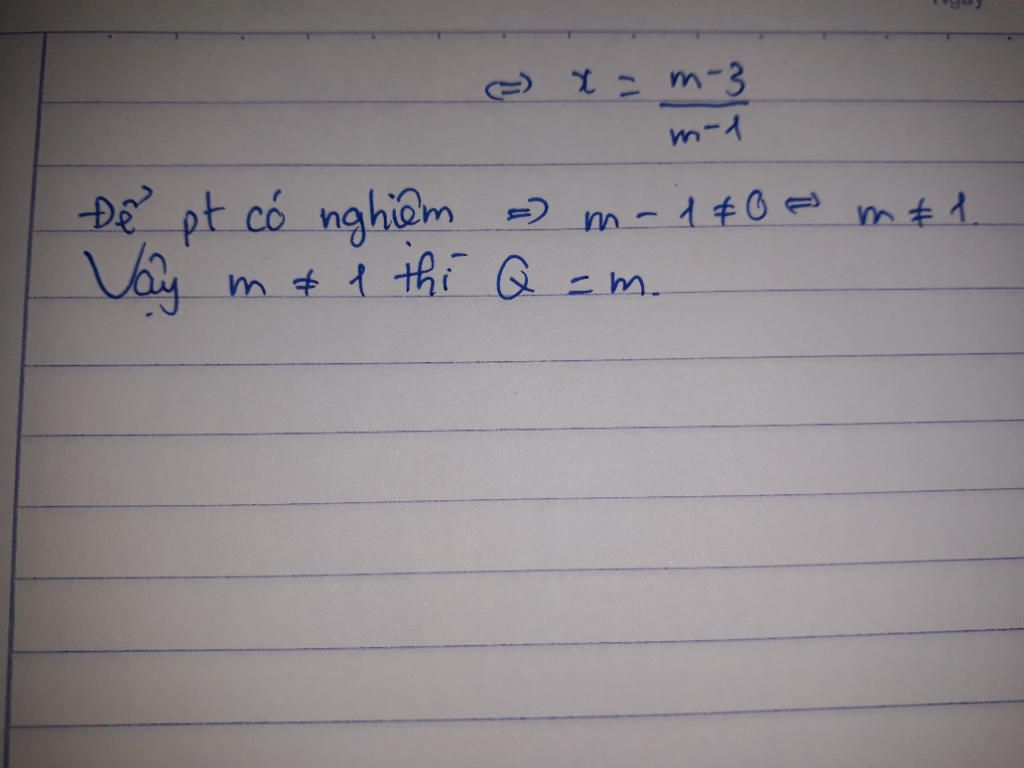 Ngày
⇔ x = \frac{m-3}{m-1}
Để pt có nghiệm ⇒ m - 1 ≠ 0 ⇔ m ≠ 1.
Vậy m ≠ 1 thì Q = m.